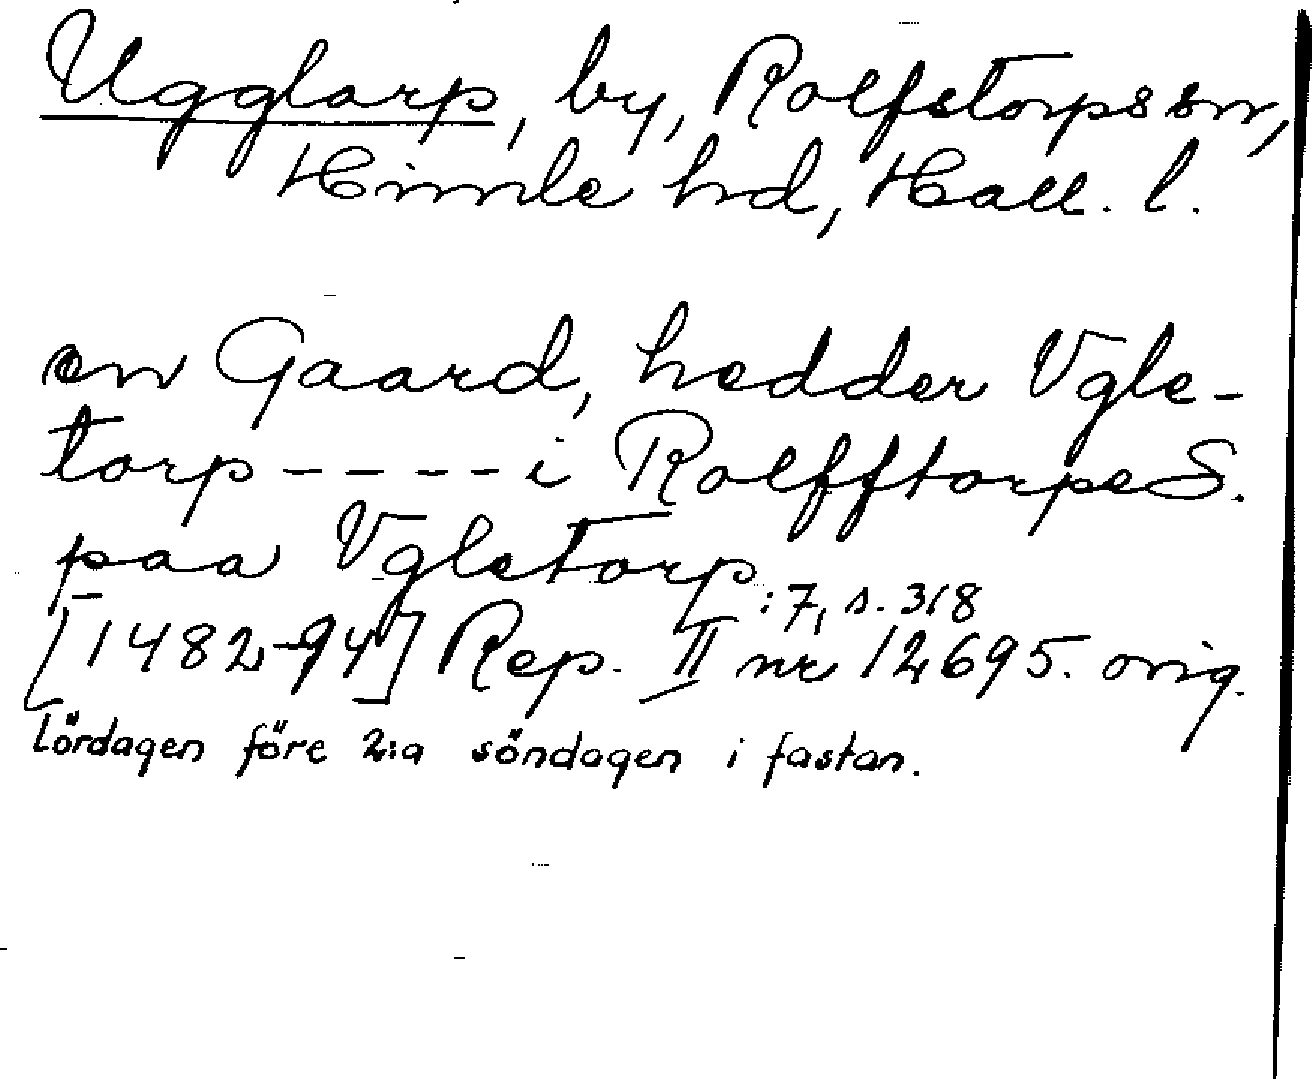 Ugglarp, by, Rolfstorps sn,
Himle hd, Hall. l.
en Gaard, hedder Vgle-
torp - - - - - i Rolfftorpe S.
paa Vgletorp
[1482-94] Rep. II:7, s. 318 nr 12695. orig.
Lördagen före 2:a söndagen i fastan.